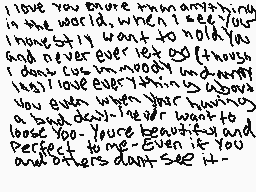 I love you more than anything
in the world, when I see you
I honestly want to hold you
and never ever let go (though
I dont cus im moody and
las) I love everything about
you even when your having
a bad day- I never want to
loose you- You're beautiful and
perfect to me- Even if you
and others dont see it-